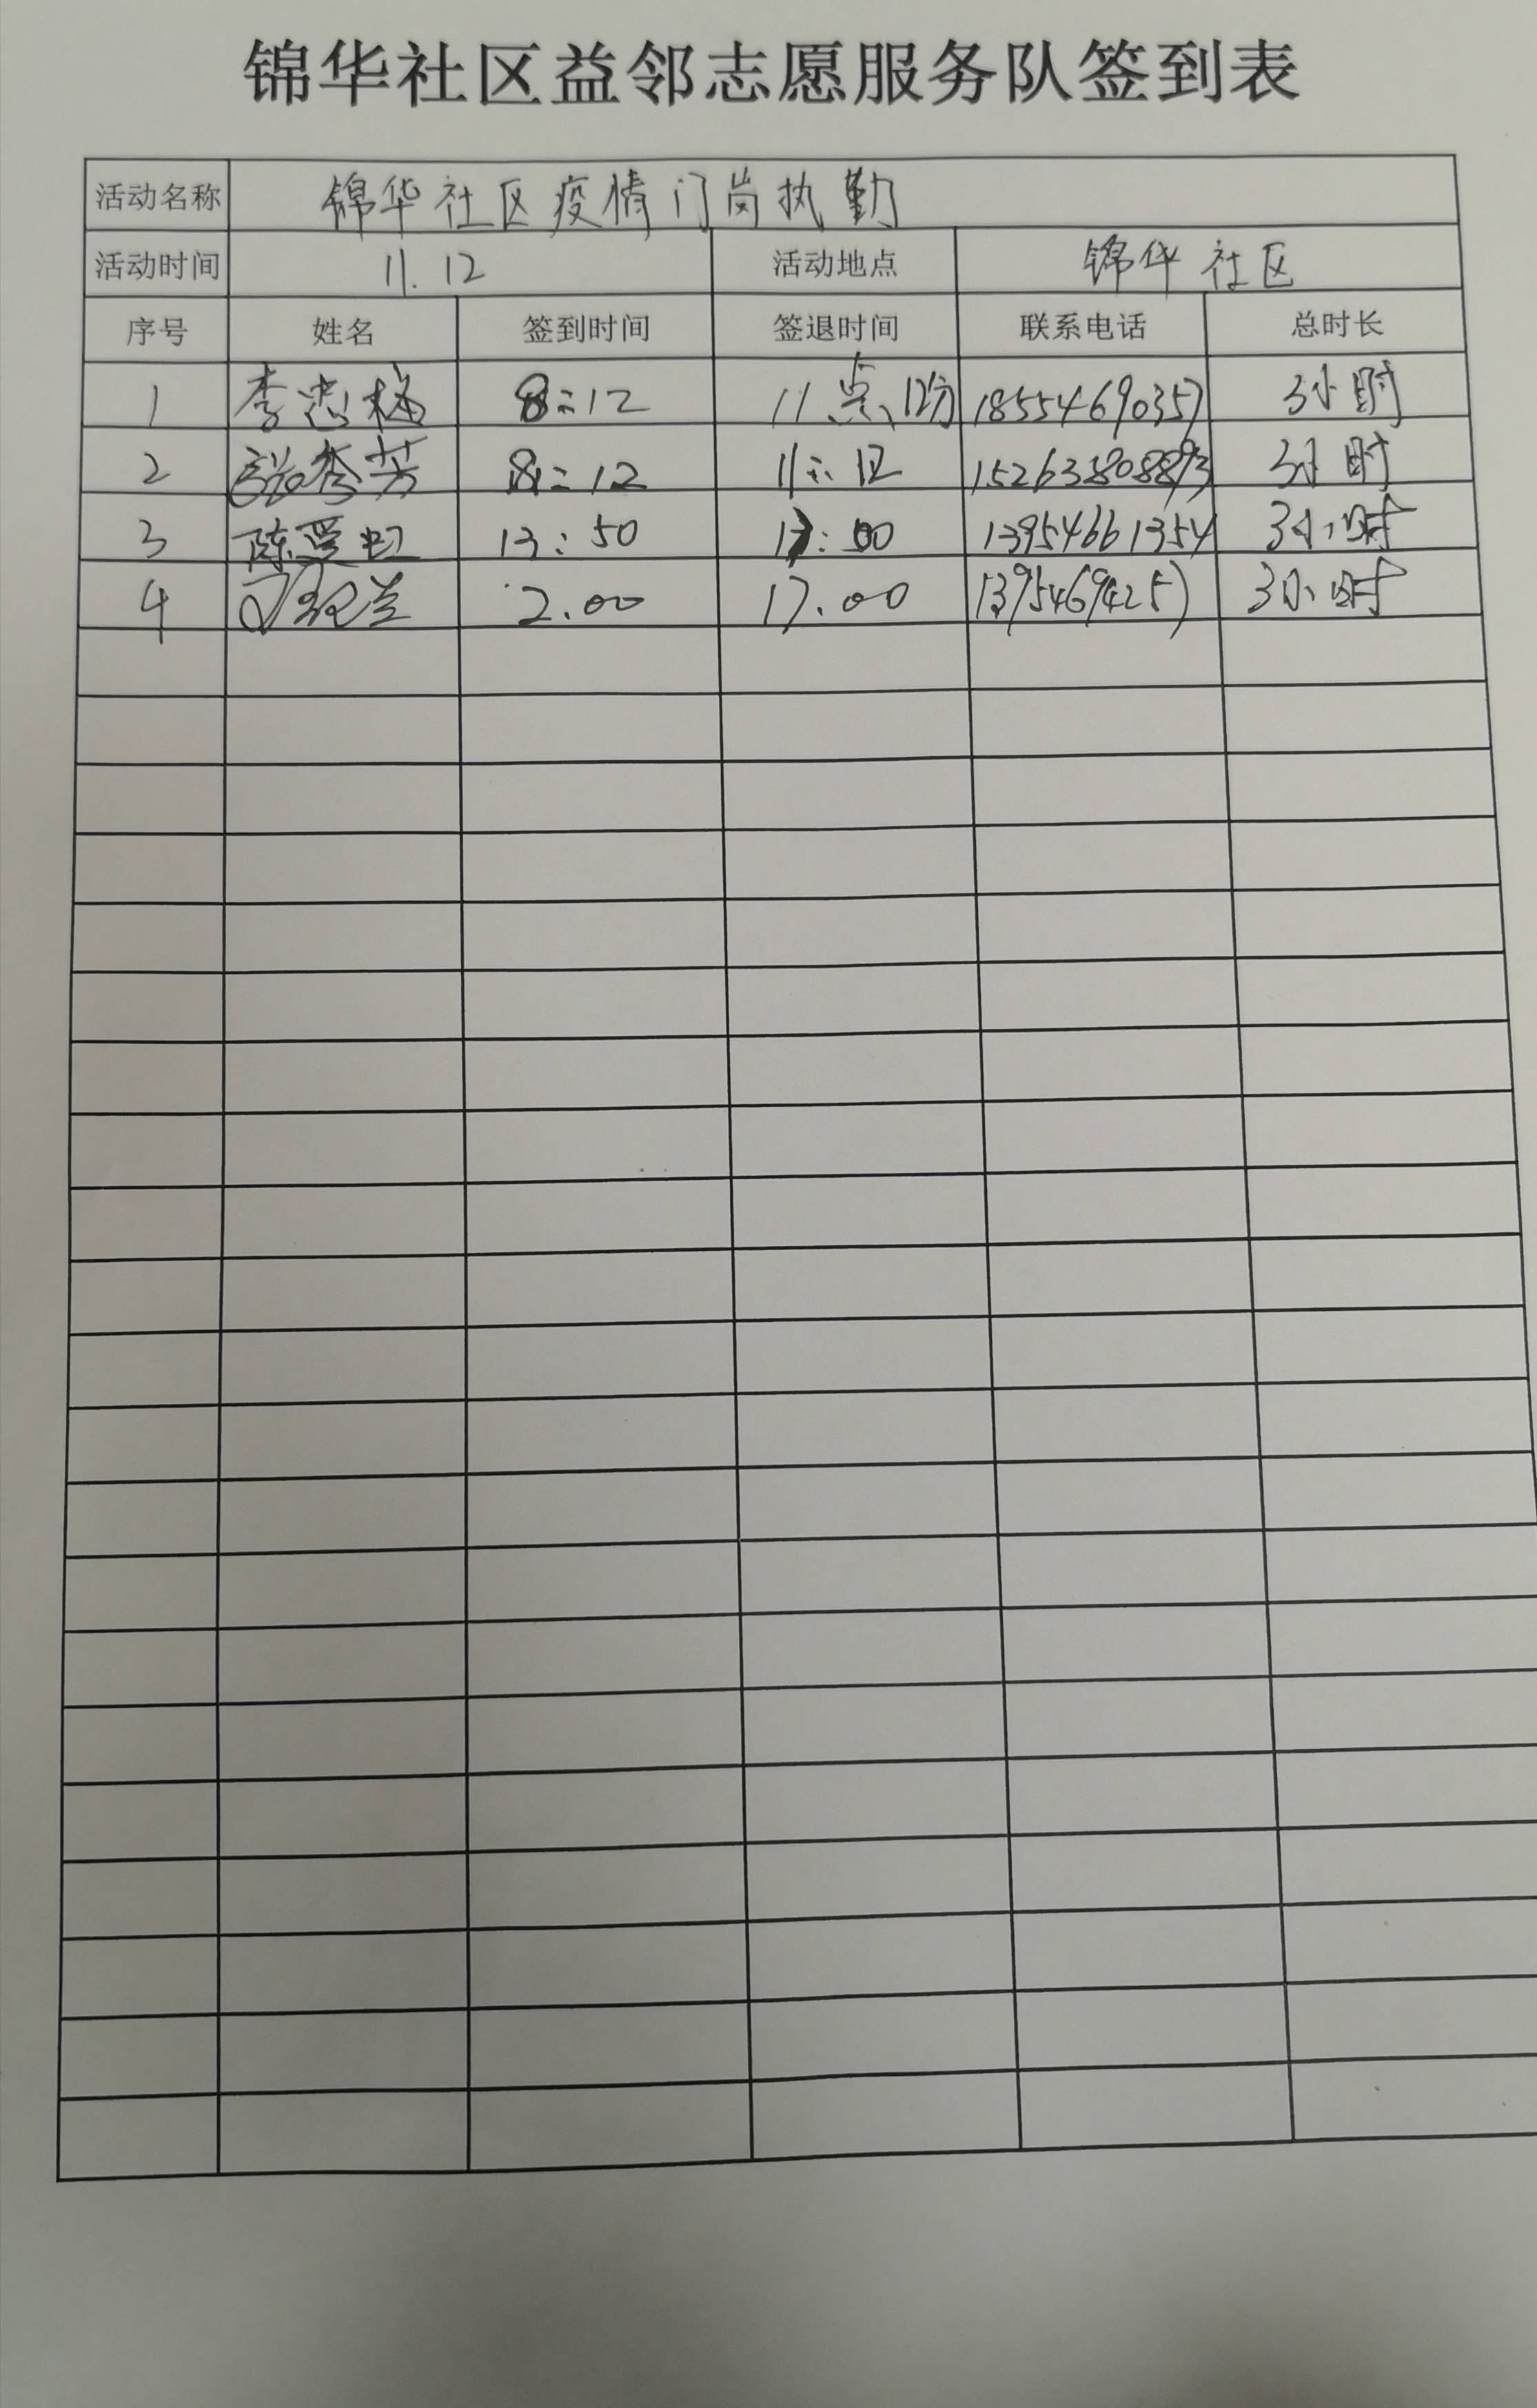 锦华社区益邻志愿服务队签到表
活动名称 锦华社区疫情门岗执勤
活动时间 11.12 活动地点 锦华社区
序号 姓名 签到时间 签退时间 联系电话 总时长
1 李忠梅 8:12 11点12分 18554690357 3小时
2 张秀芳 8:12 11:12 3小时
3 陈爱虹 13:50 17:00 13954661354 3小时
4 2.00 17.00 13954694257 3小时